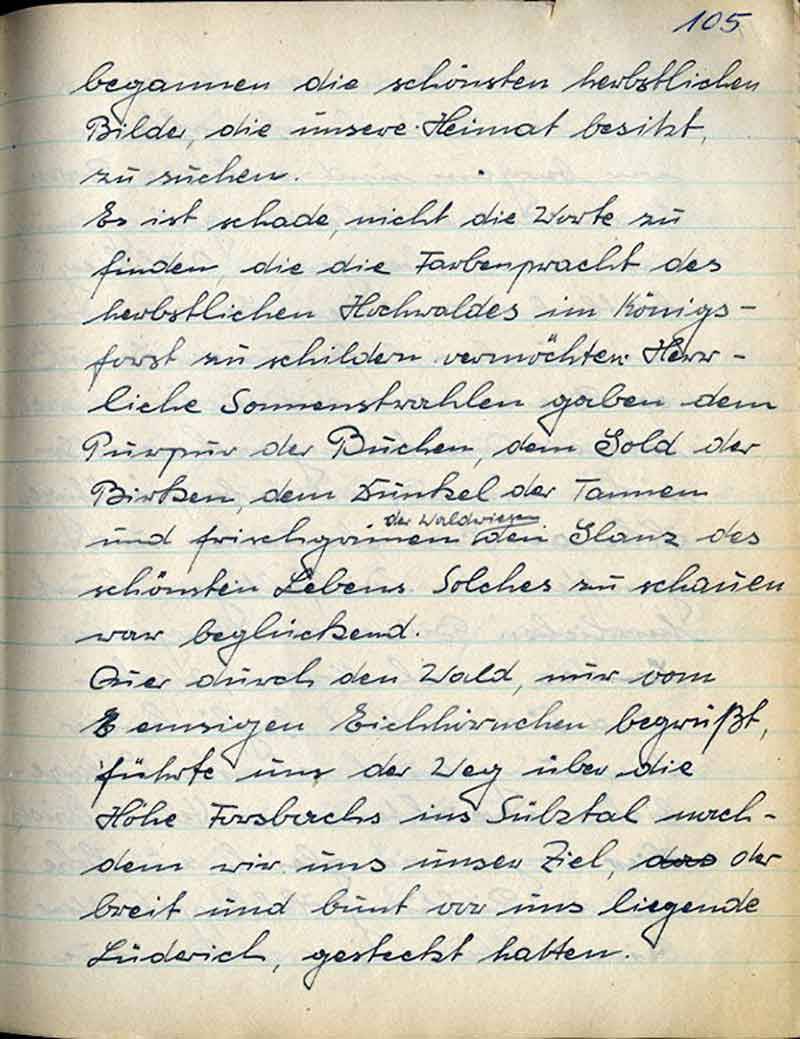 105
begannen die schönsten herbstlichen
Bilder, die unsere Heimat besitzt,
zu suchen.
Es ist schade, nicht die Worte zu
finden, die die Farbenpracht des
herbstlichen Hochwaldes im Königs-
forst zu schildern vermöchten. Herr-
liche Sonnenstrahlen gaben dem
Purpur der Buchen, dem Gold der
Birken, dem Dunkel der Tannen
der Waldwiesen
und frischgrünen den Glanz des
schönsten Lebens. Solches zu schauen
war beglückend.
Quer durch den Wald, nur vom
emsigen Eichhörnchen begrüßt,
führte uns der Weg über die
Höhe Forsbachs ins Sülztal nach-
dem wir uns unser Ziel, das der
breit und bunt vor uns liegende
Lüderich, gesteckt hatten.